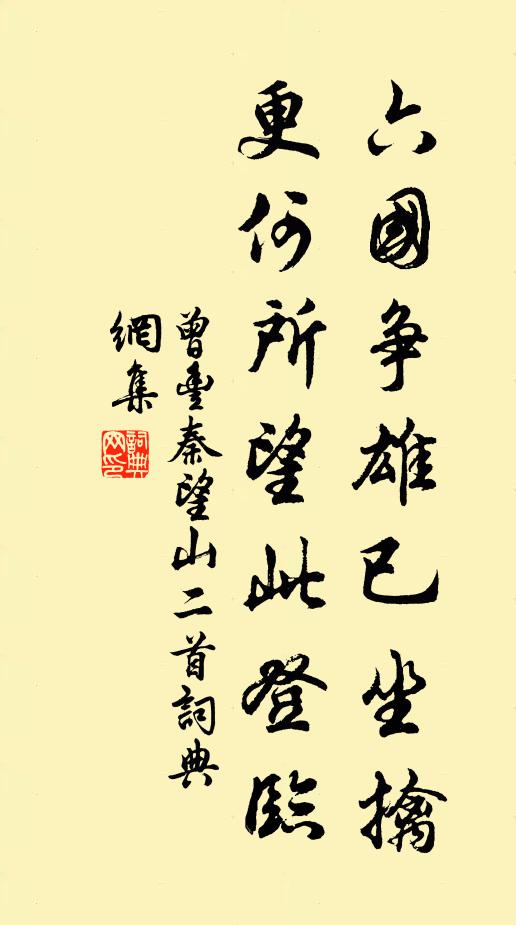 六國爭雄已坐擒
更何所望此登臨
曾豐秦望山二首詞典
網集
詞典
网印